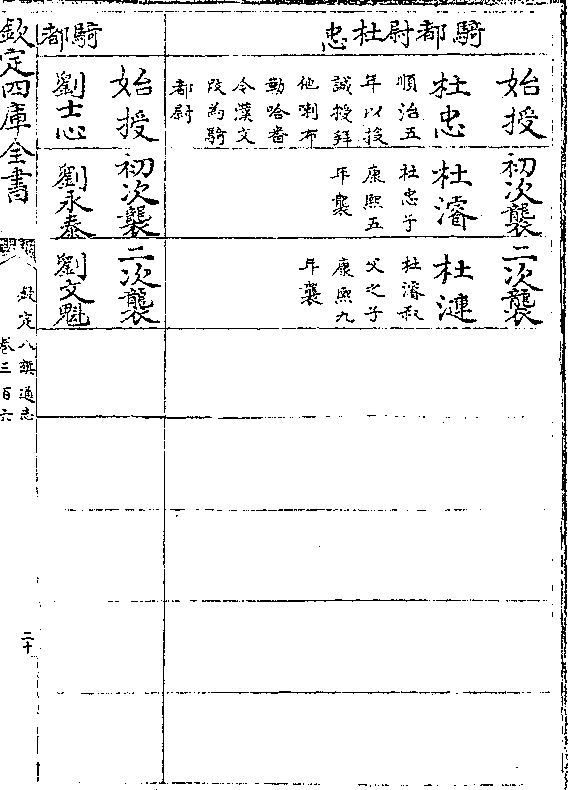 騎都尉杜忠
始授
杜忠
順治五
年以投
誠授拜
他喇布
勒哈番
令漢文
改為騎
都尉
初次襲
杜濬
杜忠子
康熙五
年襲
二次襲
杜漣
杜濬叔
父之子
康熙九
年襲
騎都
始授
劉士心
初次襲
劉永泰
二次襲
劉文魁
欽定四庫全書
欽定八旗通志
卷三百六
二十